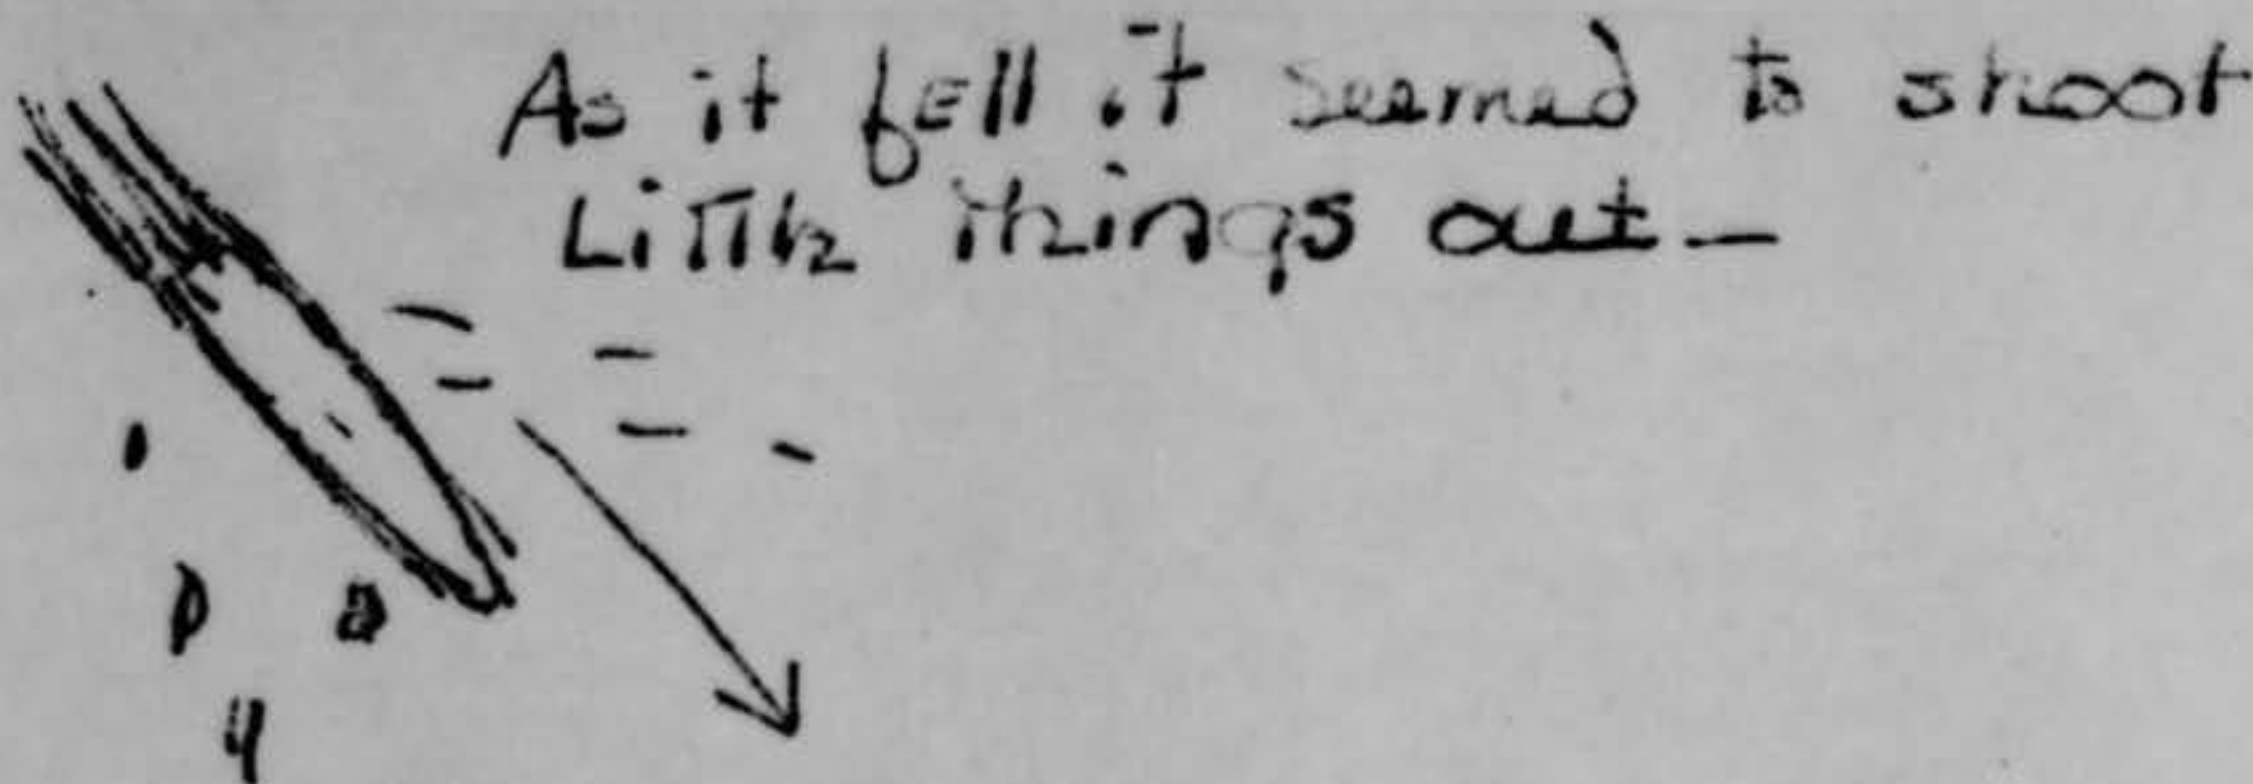 As it fell it seemed to shoot
Little things out —